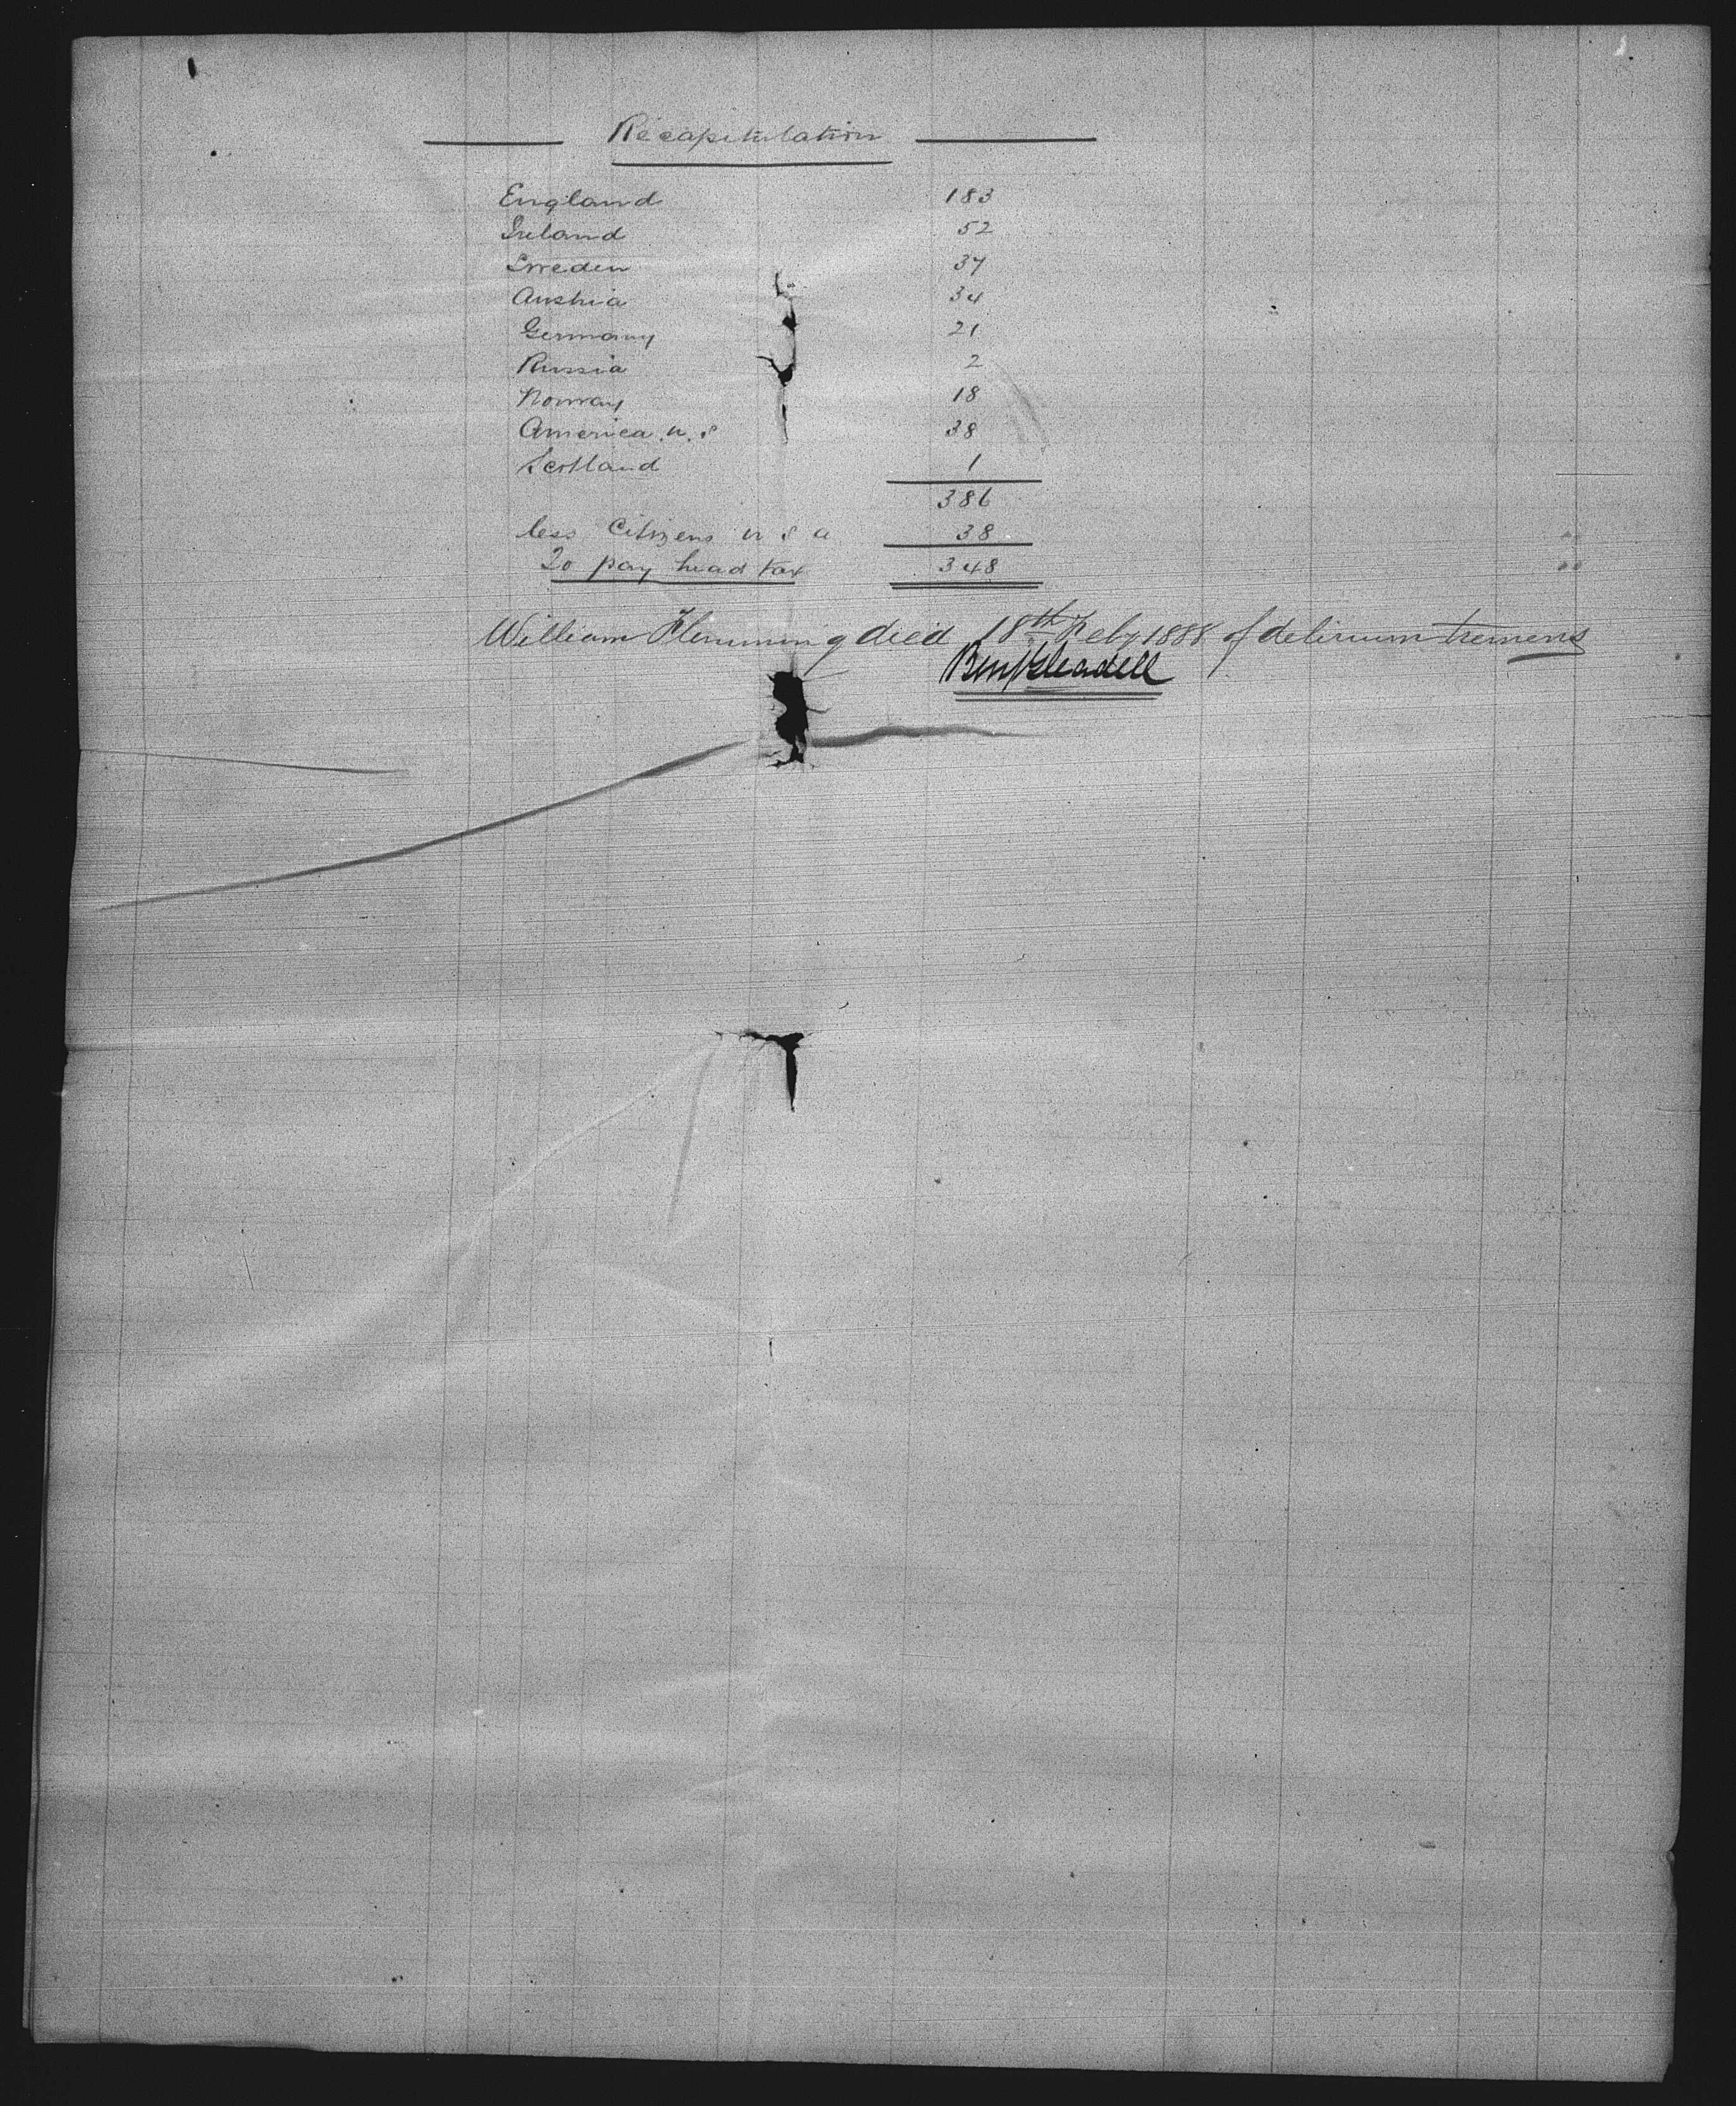 Recapitulation
England 183
Ireland 52
Sweden 37
Austria 34
Germany 21
Russia 2
Norway 18
America U. S 38
Scotland 1
386
less Citizens U S A 38
To pay head tax 348
William Flemming died 18th Feby 1888 of delirium tremens
Benj Gleadell